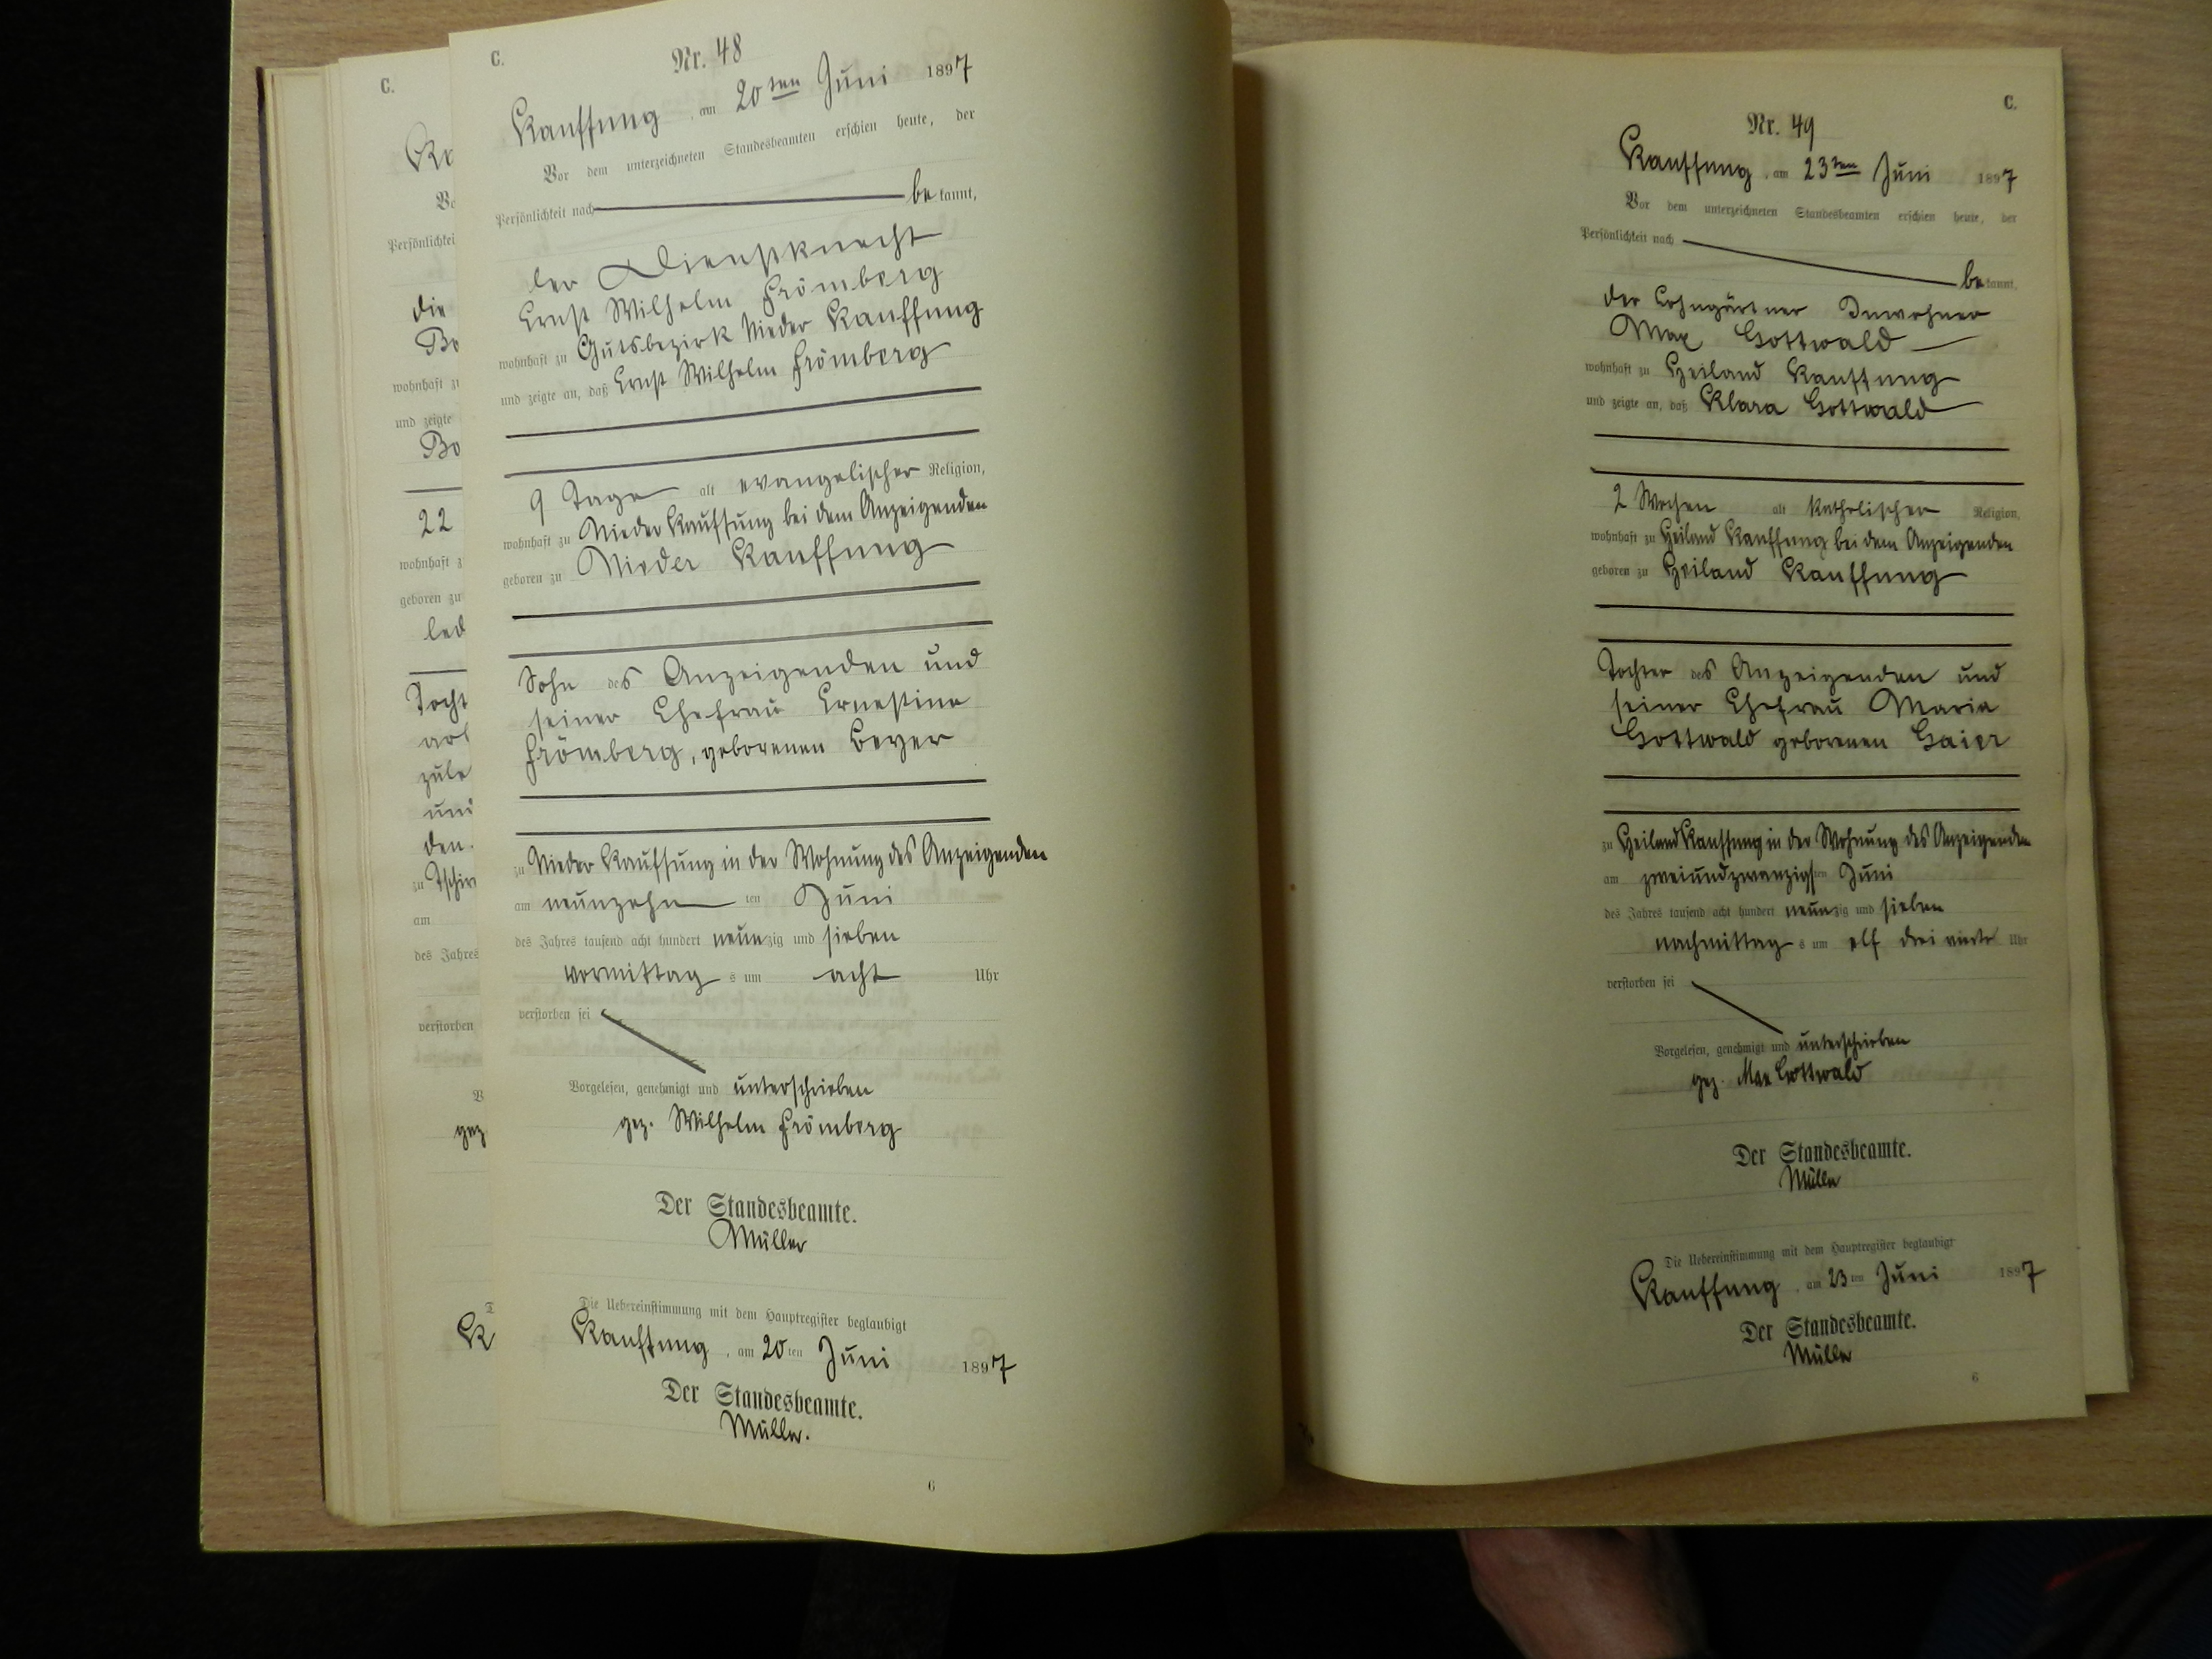 C.
Kr
Vo
Persönlichkei
die
Bo
wohnhaft zu
und zeigte
Bo
22
wohnhaft z
geboren zu
led
Tocht
arb
züle
uni
den.
zu Tschir
am
des Jahres
verstorben
V
gez
D
K
C.
Nr. 48
Kauffung, am 20ten Juni 1897
Vor dem unterzeichneten Standesbeamten erschien heute, der
Persönlichkeit nach be kannt,
der Dienstknecht
Ernst Wilhelm Frömberg
wohnhaft zu Gutsbezirk Nieder Kauffung
und zeigte an, daß Ernst Wilhelm Frömberg
9 Tage alt evangelischer Religion,
wohnhaft zu Nieder Kauffung bei dem Anzeigenden
geboren zu Nieder Kauffung
Sohn des Anzeigenden und
seiner Ehefrau Ernestine
Frömberg, geborenen Beyer
zu Nieder Kauffung in der Wohnung des Anzeigenden
am neunzehn ten Juni
des Jahres tausend acht hundert neunzig und sieben
vormittag s um acht Uhr
verstorben sei
Vorgelesen, genehmigt und unterschrieben
gez. Wilhelm Frömberg
Der Standesbeamte.
Müller
Die Uebereinstimmung mit dem Hauptregister beglaubigt
Kauffung, am 20ten Juni 1897
Der Standesbeamte.
Müller.
6
C.
Nr. 49
Kauffung, am 23ten Juni 1897
Vor dem unterzeichneten Standesbeamten erschien heute, der
Persönlichkeit nach
be kannt,
der Lohngärtner Inwohner
Max Gottwald
wohnhaft zu Heiland Kauffung
und zeigte an, daß Klara Gottwald
2 Wochen alt katholischer Religion,
wohnhaft zu Heiland Kauffung bei dem Anzeigenden
geboren zu Heiland Kauffung
Tochter des Anzeigenden und
seiner Ehefrau Maria
Gottwald geborenen Gaier
zu Heiland Kauffung in der Wohnung des Anzeigenden
am zweiundzwanzigsten Juni
des Jahres tausend acht hundert neunzig und sieben
nachmittag s um elf drei viertel Uhr
verstorben sei
Vorgelesen, genehmigt und unterschrieben
gez. Max Gottwald
Der Standesbeamte.
Müller
Die Uebereinstimmung mit dem Hauptregister beglaubigt
Kauffung, am 23ten Juni 1897
Der Standesbeamte.
Müller
6